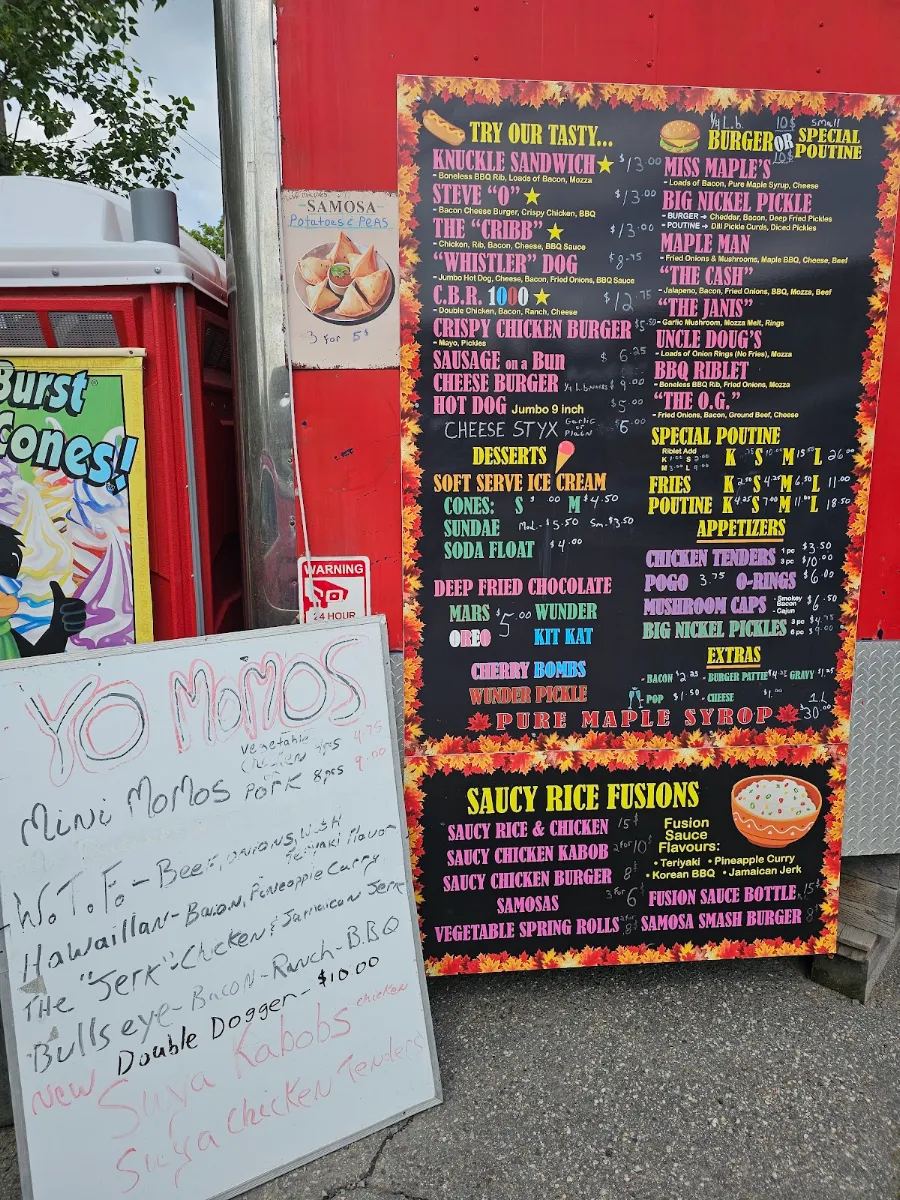 TRY OUR TASTY...
KNUCKLE SANDWICH $13.00
- Boneless BBQ Rib, Loads of Bacon, Mozza
STEVE "O" $13.00
- Bacon Cheese Burger, Crispy Chicken, BBQ
THE "CRIBB" $13.00
- Chicken, Rib, Bacon, Cheese, BBQ Sauce
"WHISTLER" DOG $8.75
- Jumbo Hot Dog, Cheese, Bacon, Fried Onions, BBQ Sauce
C.B.R. 1000 $12.75
- Double Chicken, Bacon, Ranch, Cheese
CRISPY CHICKEN BURGER $5.50
- Mayo, Pickles
SAUSAGE on a Bun $6.25
CHEESE BURGER $9.00
HOT DOG Jumbo 9 inch $5.00
CHEESE STYX Garlic or Plain 6.00
DESSERTS
SOFT SERVE ICE CREAM
CONES: S M $4.50
SUNDAE Med - $5.50 Sm - $3.50
SODA FLOAT $4.00
DEEP FRIED CHOCOLATE
MARS $5.00 WUNDER
OREO KIT KAT
CHERRY BOMBS
WUNDER PICKLE
1/4 L.b. 10$ small
BURGER OR SPECIAL POUTINE
10$
MISS MAPLE'S
- Loads of Bacon, Pure Maple Syrup, Cheese
BIG NICKEL PICKLE
- BURGER → Cheddar, Bacon, Deep Fried Pickles
- POUTINE → Dill Pickle Curds, Diced Pickles
MAPLE MAN
- Fried Onions & Mushrooms, Maple BBQ, Cheese, Beef
"THE CASH"
- Jalapeno, Bacon, Fried Onions, BBQ, Mozza, Beef
"THE JANIS"
- Garlic Mushroom, Mozza Melt, Rings
UNCLE DOUG'S
- Loads of Onion Rings (No Fries), Mozza
BBQ RIBLET
- Boneless BBQ Rib, Fried Onions, Mozza
"THE O.G."
- Fried Onions, Bacon, Ground Beef, Cheese
SPECIAL POUTINE
Riblet Add K S M L
K S M L 26.00
FRIES K 2.50 S 4.25 M 6.50 L 11.00
POUTINE K 4.25 S 7.00 M 11.00 L 18.50
APPETIZERS
CHICKEN TENDERS 1 pc $3.50 3 pc $10.00
POGO 3.75 O-RINGS $6.00
MUSHROOM CAPS - Smokey Bacon - Cajun $6.50
BIG NICKEL PICKLES 3 pc $4.75 6 pc $9.00
EXTRAS
- BACON $2.25 - BURGER PATTIE $4.25 GRAVY $1.25
- POP $1.50 - CHEESE $1.00
PURE MAPLE SYROP 1L $30.00
SAUCY RICE FUSIONS
SAUCY RICE & CHICKEN 15$
SAUCY CHICKEN KABOB 2 for 10$
SAUCY CHICKEN BURGER 8$
SAMOSAS 3 for 6$
VEGETABLE SPRING ROLLS
Fusion
Sauce
Flavours:
• Teriyaki • Pineapple Curry
• Korean BBQ • Jamaican Jerk
FUSION SAUCE BOTTLE 15$
SAMOSA SMASH BURGER 8$
SAMOSA
Potatoes & PEAS
3 for 5$
Burst
Cones!
WARNING
24 HOUR
YO MoMOS
vegetable
chicken 4pcs 4.75
Mini MoMos or PORK 8pcs 9.00
W.T.F. - Beef, onions, W.S.H
Teriyaki Flavor
Hawaiian - Bacon, Pineapple Curry
THE "Jerk" - Chicken & Jamaican Jerk
Bullseye - Bacon - Ranch - B.B.Q
Double Dogger - $10.00
New Suya Kabobs chicken
Suya Chicken Tenders